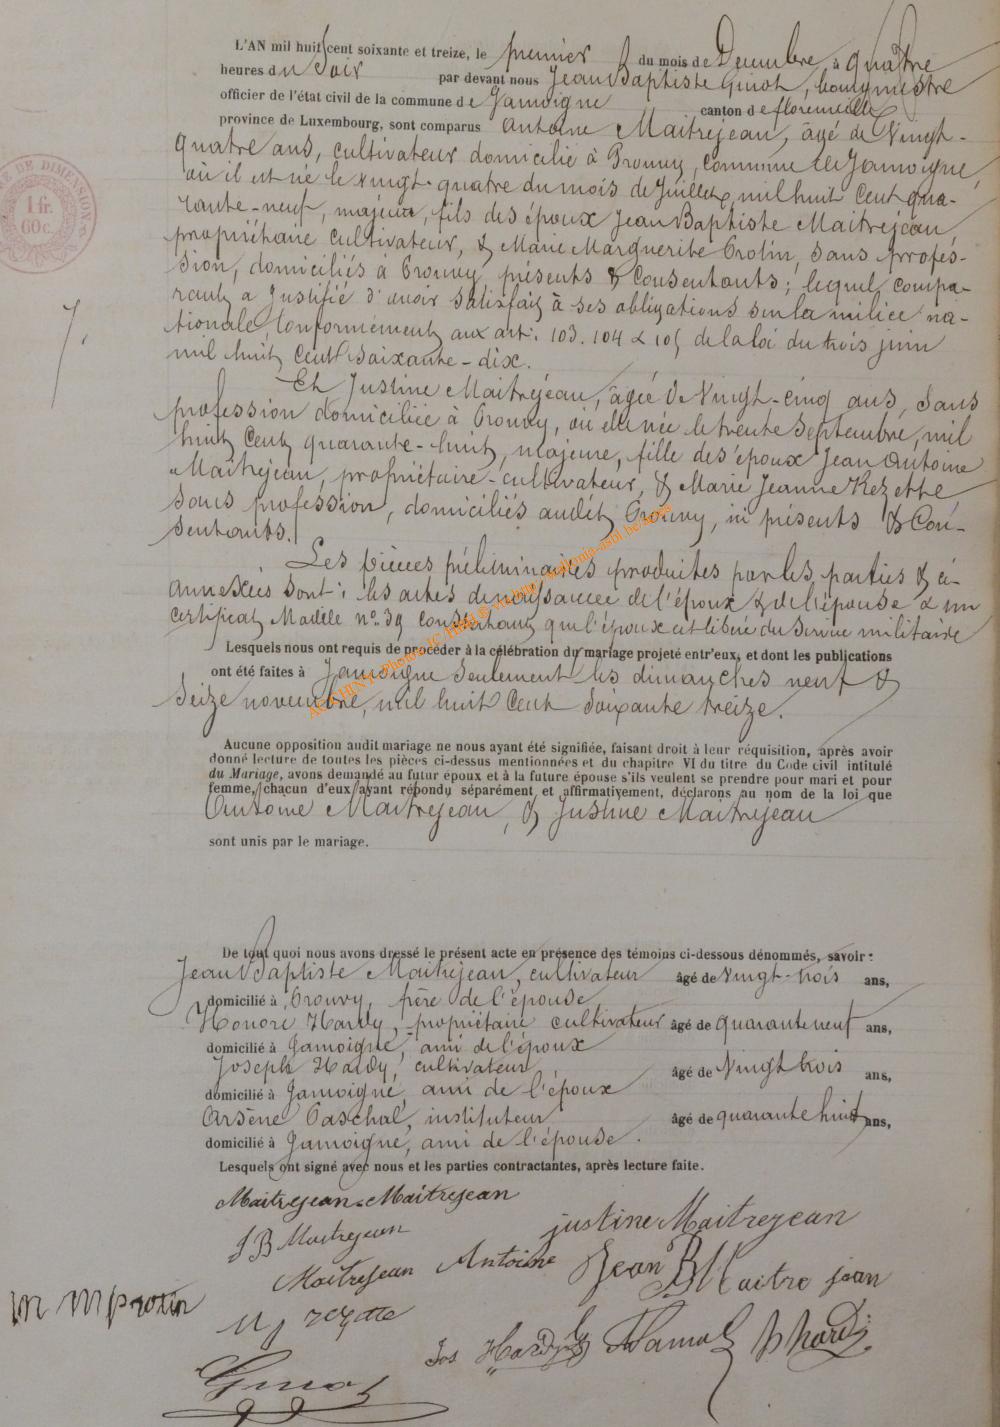 L'AN mil huit cent soixante et treize, le premier du mois de Decembre, à quatre
heures du Soir par devant nous Jean Baptiste Guiot, bourgmestre
officier de l'état civil de la commune de Jamoigne canton de florenville
province de Luxembourg, sont comparus Antoine Maitrejean, âgé de Vingt-
quatre ans, cultivateur domicilié à Prouvy, commune de Jamoigne,
où il est né le vingt-quatre du mois de Juillet, mil huit Cent qua-
rante-neuf, majeur, fils des époux Jean Baptiste Maitrejean,
propriétaire cultivateur, & Marie Marguerite Protin, sans profes-
sion, domiciliés à Prouvy présents & Consentants; lequel compa-
rant a Justifié d'avoir satisfait à ses obligations sur la milice na-
tionale, Conformément aux art: 103. 104 & 105 de la loi du trois juin
mil huit Cent Soixante-dix.
Et Justine Maitrejean, âgée de Vingt-cinq ans, Sans
profession domiciliée à Prouvy, où elle née le trente Septembre, mil
huit Cent quarante-huit, majeure, fille des époux Jean Antoine
Maitrejean, propriétaire-cultivateur, & Marie Jeanne Rezette
Sans profession, domiciliés audit Prouvy, ici présents & Con-
sentants.
Les pièces préliminaires produites par les parties & ci-
annexées sont: les actes de naissance de l'époux & de l'épouse & un
certificat Modèle n° 39 constatant que l'époux est libéré du service militaire
Lesquels nous ont requis de procéder à la célébration du mariage projeté entr'eux, et dont les publications
ont été faites à Jamoigne Seulement les dimanches neuf &
Seize novembre, mil huit Cent Soixante treize.
Aucune opposition audit mariage ne nous ayant été signifiée, faisant droit à leur réquisition, après avoir
donné lecture de toutes les pièces ci-dessus mentionnées et du chapitre VI du titre du Code civil intitulé
du Mariage, avons demandé au futur époux et à la future épouse s'ils veulent se prendre pour mari et pour
femme, chacun d'eux ayant répondu séparément et affirmativement, déclarons au nom de la loi que
Antoine Maitrejean, & Justine Maitrejean
sont unis par le mariage.
De tout quoi nous avons dressé le présent acte en présence des témoins ci-dessous dénommés, savoir:
Jean Baptiste Maitrejean, cultivateur âgé de vingt-trois ans,
domicilié à Prouvy, frère de l'épouse
Honoré Hardy, propriétaire cultivateur âgé de quarante neuf ans,
domicilié à Jamoigne, ami de l'époux
Joseph Hardy, cultivateur âgé de Vingt trois ans,
domicilié à Jamoigne, ami de l'époux
Arsène Paschal, instituteur âgé de quarante huit ans,
domicilié à Jamoigne, ami de l'épouse.
Lesquels ont signé avec nous et les parties contractantes, après lecture faite.
Maitrejean Maitrejean
J B Maitrejean justine Maitrejean
Maitrejean Antoine Jean B Maitrejean
M M protin
M J rezette
Jos Hardy h hardi
Guiot
DE DIMENSION
1 fr.
60 c.